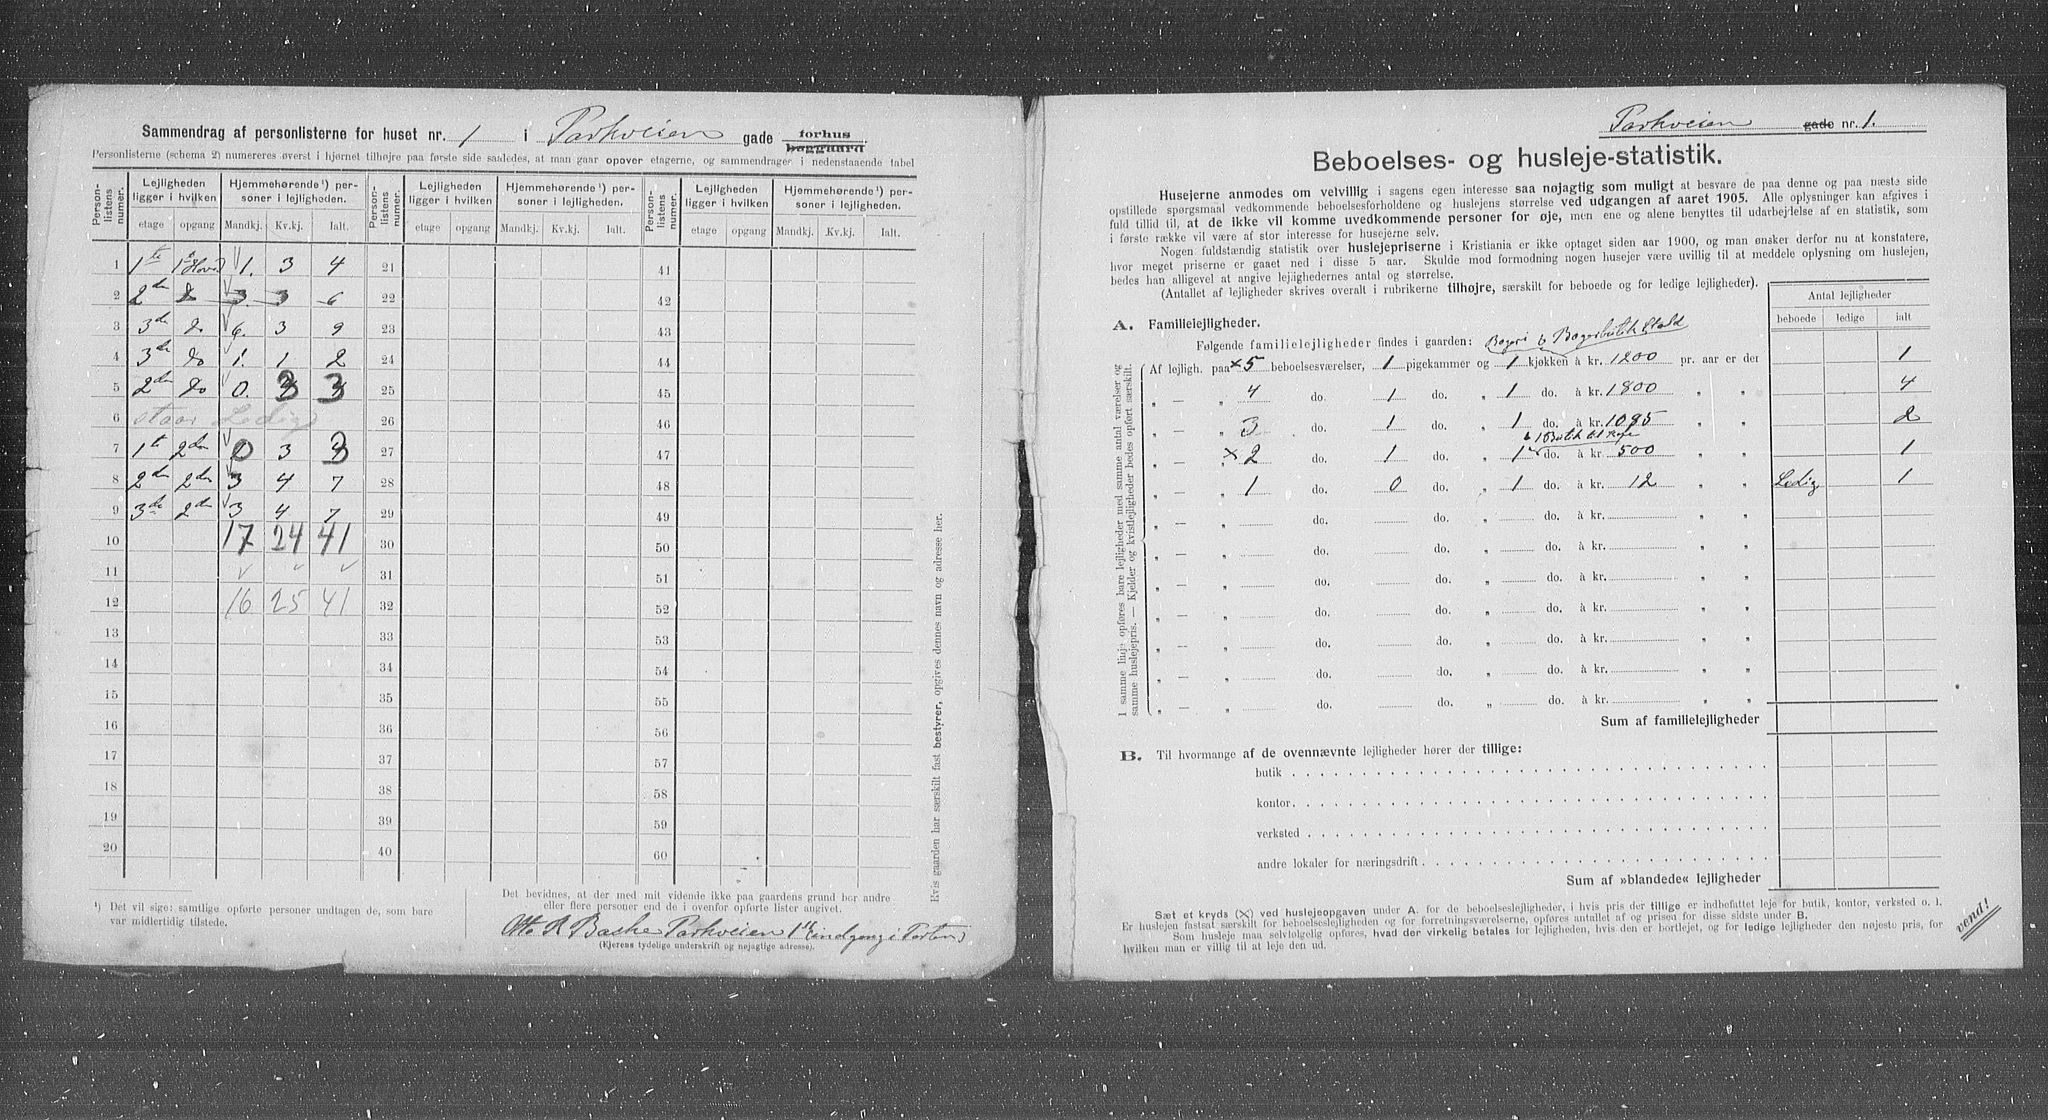 Sammendrag af personlisterne for huset nr. 1 i Parkveien gade forhus baggaard
Personlisterne (schema 2) numereres øverst i hjørnet tilhøjre paa første side saaledes, at man gaar opover etagerne, og sammendrages i nedenstaaende tabel
Personlistens nummer. Lejligheden ligger i hvilken Hjemmehørende¹) personer i lejligheden. Personlistens nummer. Lejligheden ligger i hvilken Hjemmehørende¹) personer i lejligheden. Personlistens nummer. Lejligheden ligger i hvilken Hjemmehørende¹) personer i lejligheden.
etage opgang Mandkj. Kv.kj. Ialt. etage opgang Mandkj. Kv.kj. Ialt. etage opgang Mandkj. Kv.kj. Ialt.
1 1ste 1ste Hoved 1. 3 4 21 41
2 2den Do 3. 3 6 22 42
3 3de Do 6. 3 9 23 43
4 3de Do 1. 1 2 24 44
5 2den Do 0. 3 3 25 45
6 staar Ledig 26 46
7 1te 2den 0 3 3 27 47
8 2den 2den 3 4 7 28 48
9 3de 2den 3 4 7 29 49
10 17 24 41 30 50
11 31 51
12 16 25 41 32 52
13 33 53
14 34 54
15 35 55
16 36 56
17 37 57
18 38 58
19 39 59
20 40 60
¹) Det vil sige: samtlige opførte personer undtagen de, som bare
var midlertidig tilstede.
Det bevidnes, at der med mit vidende ikke paa gaardens grund bor andre
eller flere personer end de i ovenfor opførte lister angivet.
Otto R Bashe Parkveien 1 (indgang i Porten)
(Ejerens tydelige underskrift og nøjagtige adresse).
Kvis gaarden har særskilt fast bestyrer, opgives dennes navn og adresse her.
Parkveien gade nr. 1.
Beboelses- og husleje-statistik.
Husejerne anmodes om velvillig i sagens egen interesse saa nøjagtig som muligt at besvare de paa denne og paa næste side
opstillede spørgsmaal vedkommende beboelsesforholdene og huslejens størrelse ved udgangen af aaret 1905. Alle oplysninger kan afgives i
fuld tillid til, at de ikke vil komme uvedkommende personer for øje, men ene og alene benyttes til udarbejdelse af en statistik, som
i første række vil være af stor interesse for husejerne selv.
Nogen fuldstændig statistik over huslejepriserne i Kristiania er ikke optaget siden aar 1900, og man ønsker derfor nu at konstatere,
hvor meget priserne er gaaet ned i disse 5 aar. Skulde mod formodning nogen husejer være uvillig til at meddele oplysning om huslejen,
bedes han alligevel at angive lejlighedernes antal og størrelse.
(Antallet af lejligheder skrives overalt i rubrikerne tilhøjre, særskilt for beboede og for ledige lejligheder).
Antal lejligheder
beboede ledige ialt
A. Familielejligheder.
Følgende familielejligheder findes i gaarden: Bageri & Bagerbutik Stald
Af lejligh. paa × 5 beboelsesværelser, 1 pigekammer og 1 kjøkken à kr. 1200 pr. aar er der 1
„ — „ 4 do. 1 do. „ 1 do. à kr. 1800 „ „ 4
„ — „ 3 do. 1 do. „ 1 do. à kr. 1095 „ „ 2
1 Butik
„ — „ × 2 do. 1 do. „ 1 do. à kr. 500 „ „ 1
„ — „ 1 do. 0 do. „ 1 do. à kr. 12 „ „ Ledig 1
„ — „ do. do. „ do. à kr. „ „
„ — „ do. do. „ do. à kr. „ „
„ — „ do. do. „ do. à kr. „ „
„ — „ do. do. „ do. à kr. „ „
„ — „ do. do. „ do. à kr. „ „
„ — „ do. do. „ do. à kr. „ „
„ — „ do. do. „ do. à kr. „ „
I samme linje opføres bare lejligheder med samme antal værelser og
samme huslejepris. — Kjelder og kvistlejligheder bedes opført særskilt.
Sum af familielejligheder
B. Til hvormange af de ovennævnte lejligheder hører der tillige:
butik
kontor
verksted
andre lokaler for næringsdrift
Sum af »blandede« lejligheder
Sæt et kryds (×) ved huslejeopgaven under A. for de beboelseslejligheder, i hvis pris der tillige er indbefattet leje for butik, kontor, verksted o. l.
Er huslejen fastsat særskilt for beboelseslejligheden og for forretningsværelserne, opføres antallet af og prisen for disse sidste under B.
Som husleje maa selvfølgelig opføres, hvad der virkelig betales for lejligheden, hvis den er bortlejet, og for ledige lejligheder den nøjeste pris, for
hvilken man er villig til at leje den ud.
vend!